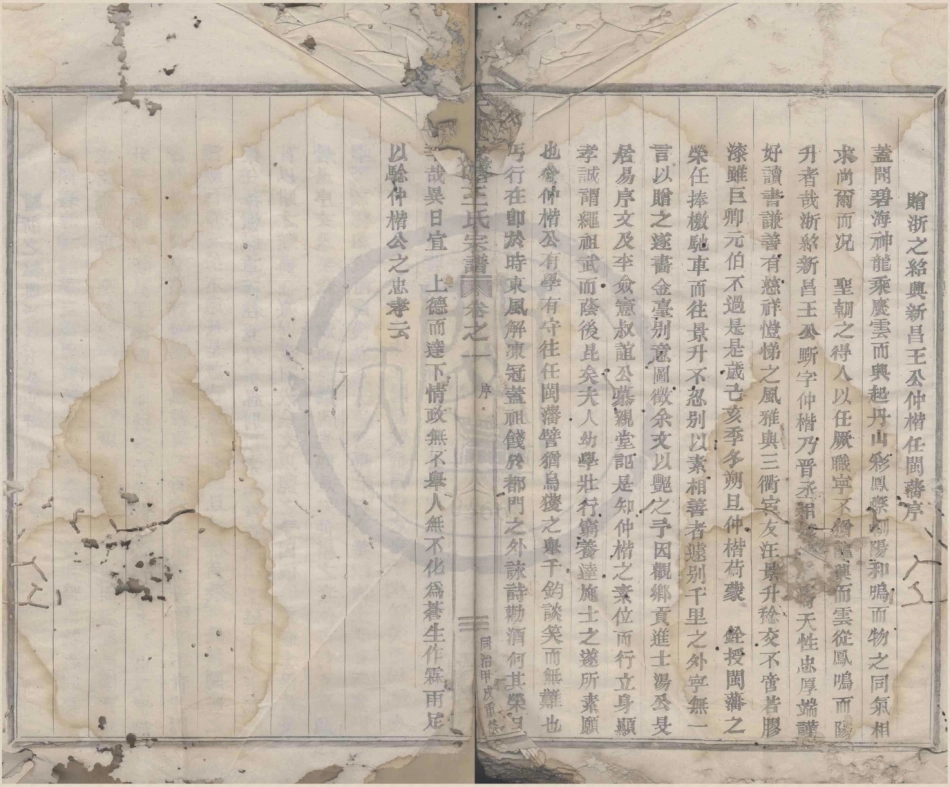 贈浙之紹興新昌王公仲楷任閩藩序
蓋聞碧海神龍乘慶雲而興起丹山彩鳳 陽和鳴而物之同氣相
求尚爾而况 聖朝之得人以任厥職寧不 興而雲從鳳鳴而陽
升者哉浙紹新昌王公 字仲楷乃晉丞相 天性忠厚端謹
好讀書謙善有慈祥愷悌之風雅與三衢宮友汪景升稔交不啻若膠
漆雖巨卿元伯不過是是歲乙亥季冬朔旦仲楷荷蒙 銓授閩藩之
榮任捧檄馳車而往景升不忍别以素相善者遽别千里之外寧無一
言以贈之遂畵金臺别意圖徵余文以艶之予因觀鄉貢進士湯公旻
居易序文及李僉憲叔誼公慕親堂記是知仲楷之素位而行立身顯
孝誠謂繩祖武而蔭後昆矣夫人幼學壯行窮養達施士之遂所素願
也今仲楷公有學有守往任閩藩譬猶烏獲之舉千鈞談笑而無難也
丐行在卽於時東風解凍冠蓋祖餞於都門之外詠詩勸酒何其榮且
王氏宗譜 卷之一 序 同治甲戌重
哉異日宣 上德而達下情政無不舉人無不化爲蒼生作霖雨足
以驗仲楷公之忠孝云